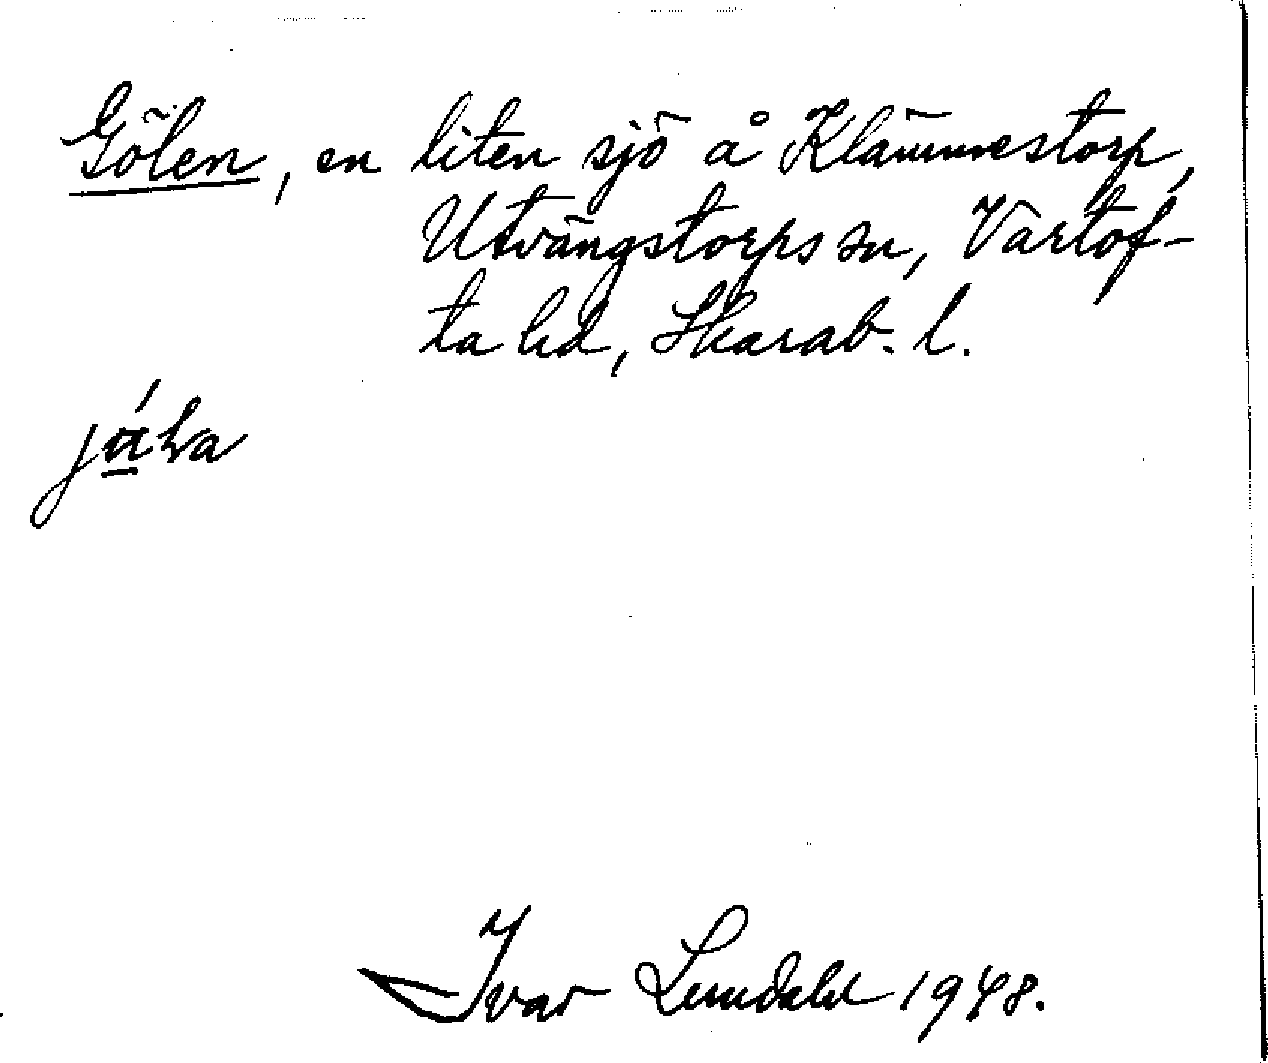 Gölen, en liten sjö å Klämmestorp,
Utvängstorps sn, Vartof-
ta hd, Skarab. l.
Ivar Lundahl 1948.